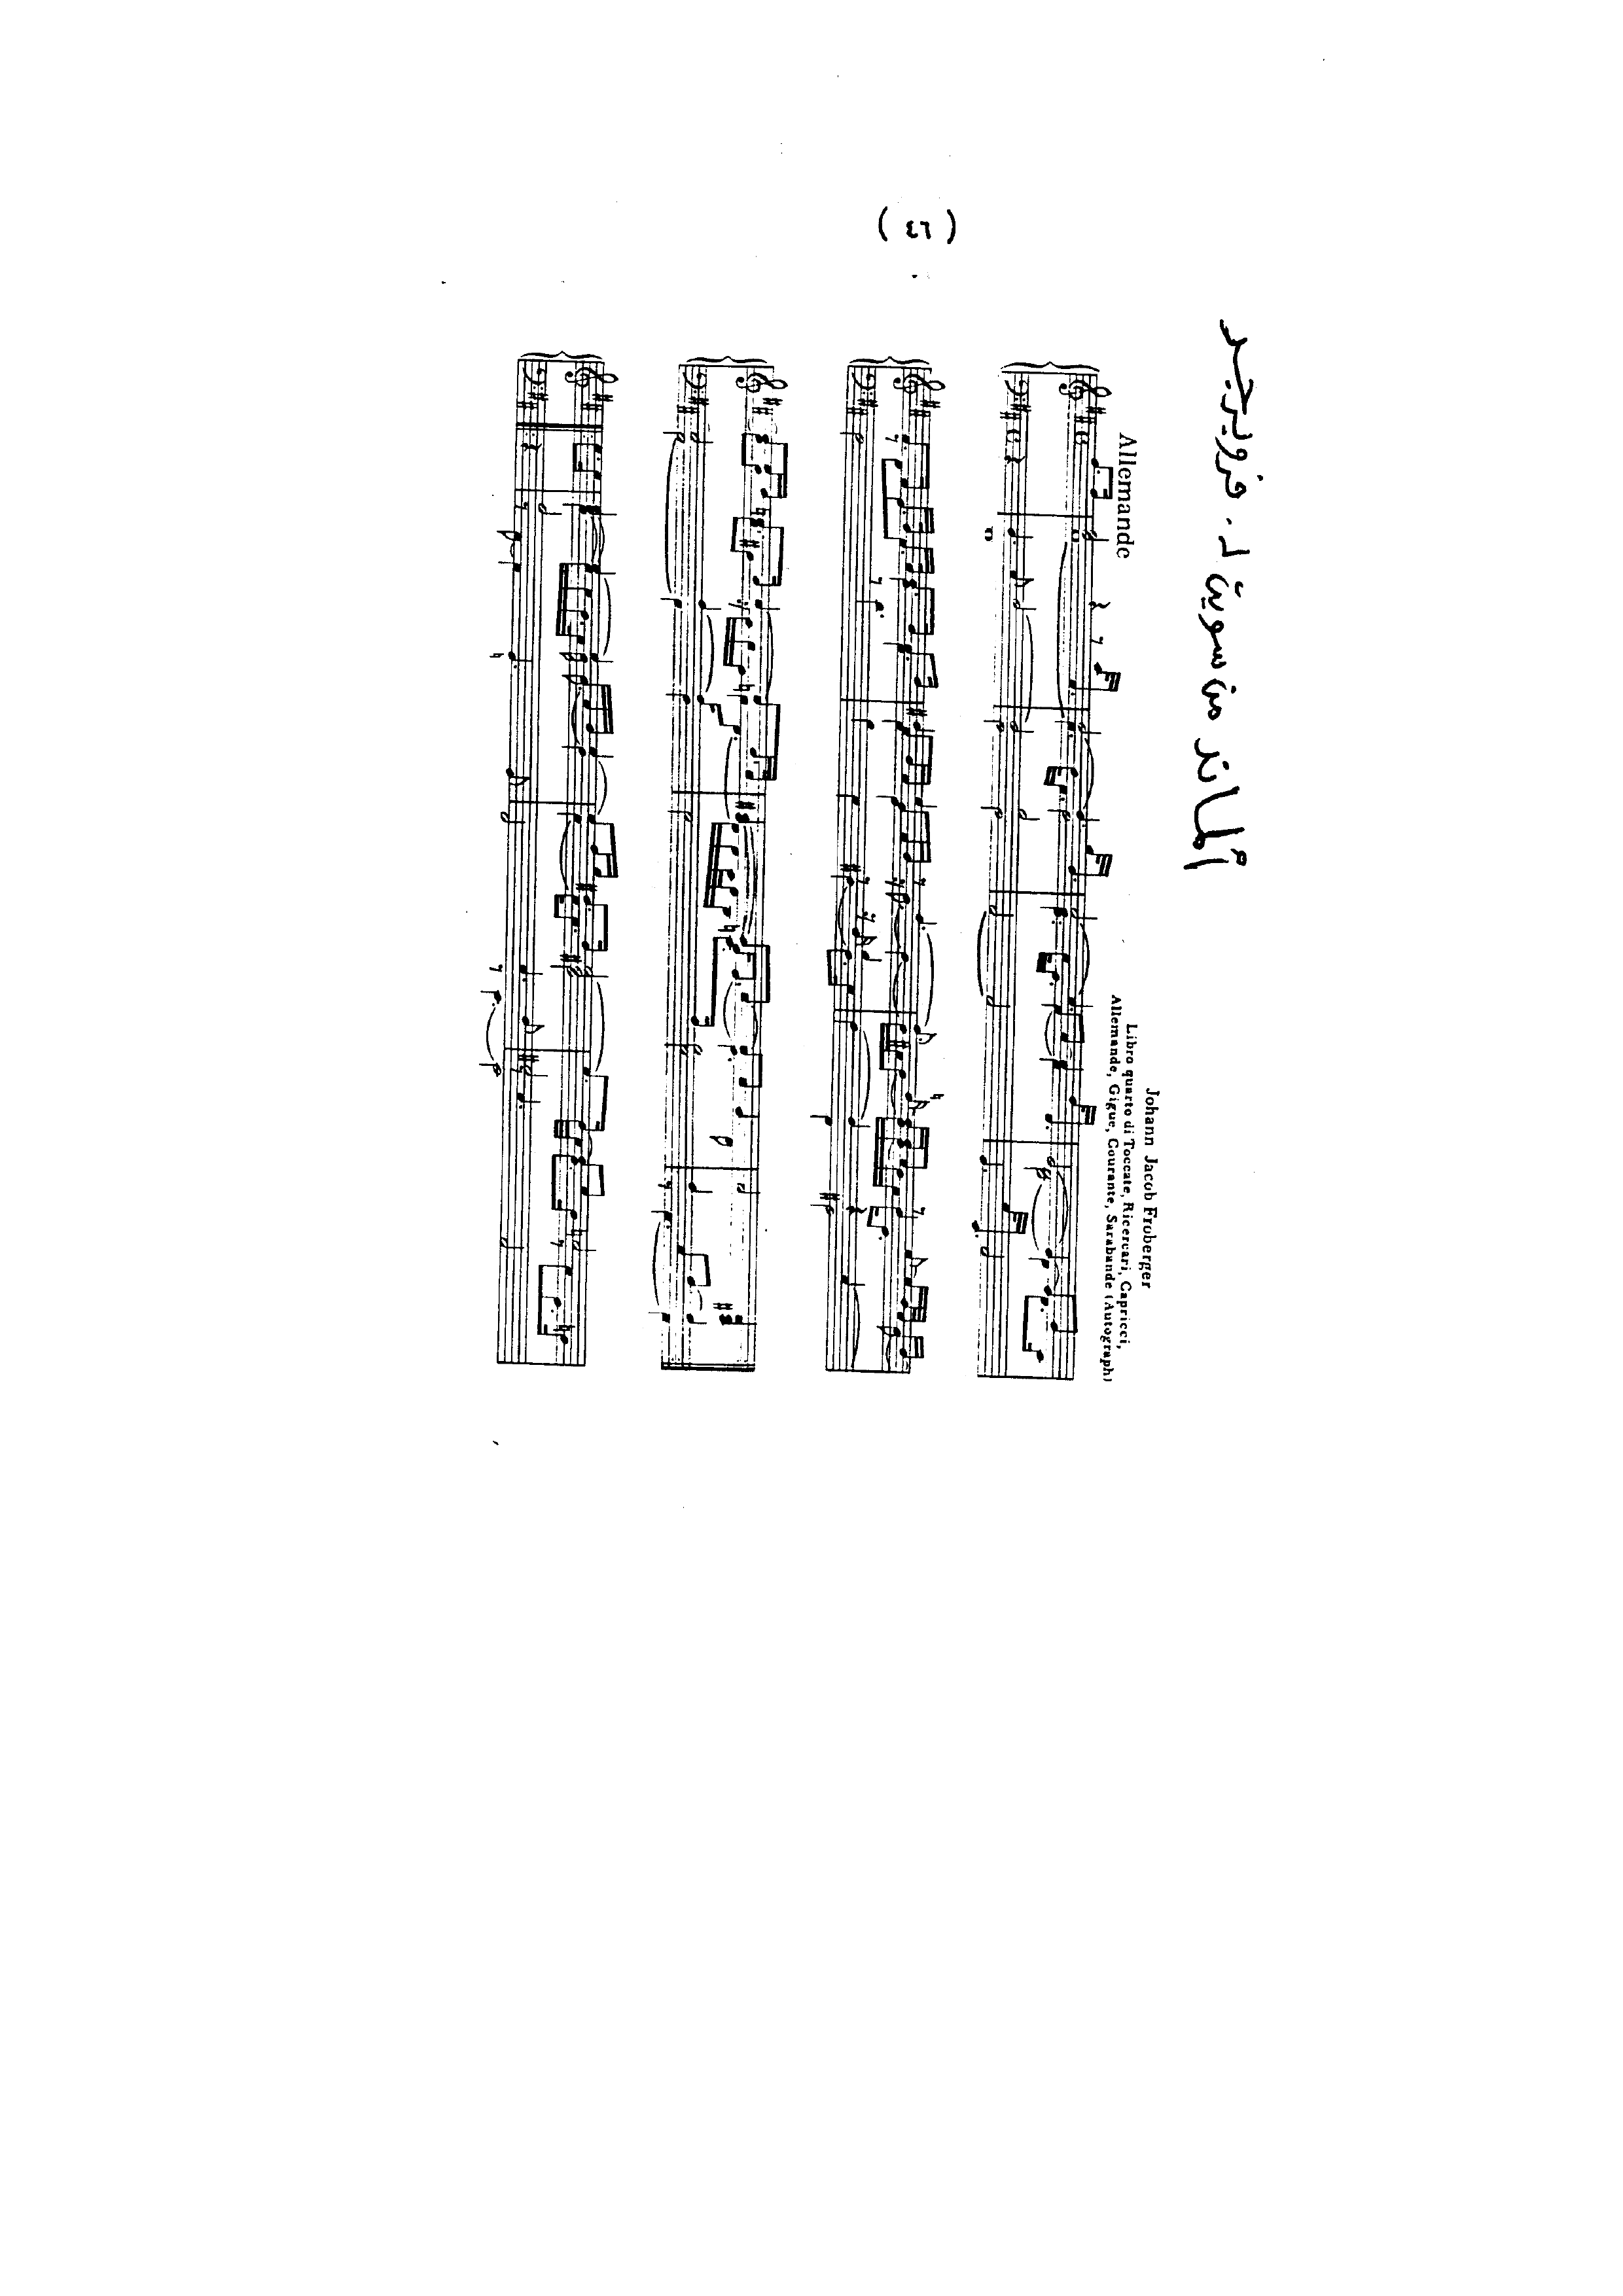 ( ٤٦ )
ألماند من سويت لـ . فروبرجر
Johann Jacob Froberger
Libro quarto di Toccate, Ricercari, Capricci,
Allemande, Gigue, Courante, Sarabande (Autograph)
Allemande